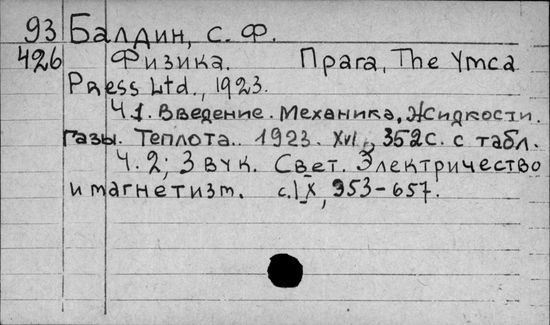 93 Балдин, С. Ф.
426 Физика. Прага, The Ymca
Press Ltd., 1923.
Ч.1. Введение. Механика, Жидкости.
Газы. Теплота.. 1923. XVI, 352 с. с табл.
Ч. 2; Звук. Свет. Электричество
и магнетизм. с. IX, 353-657.